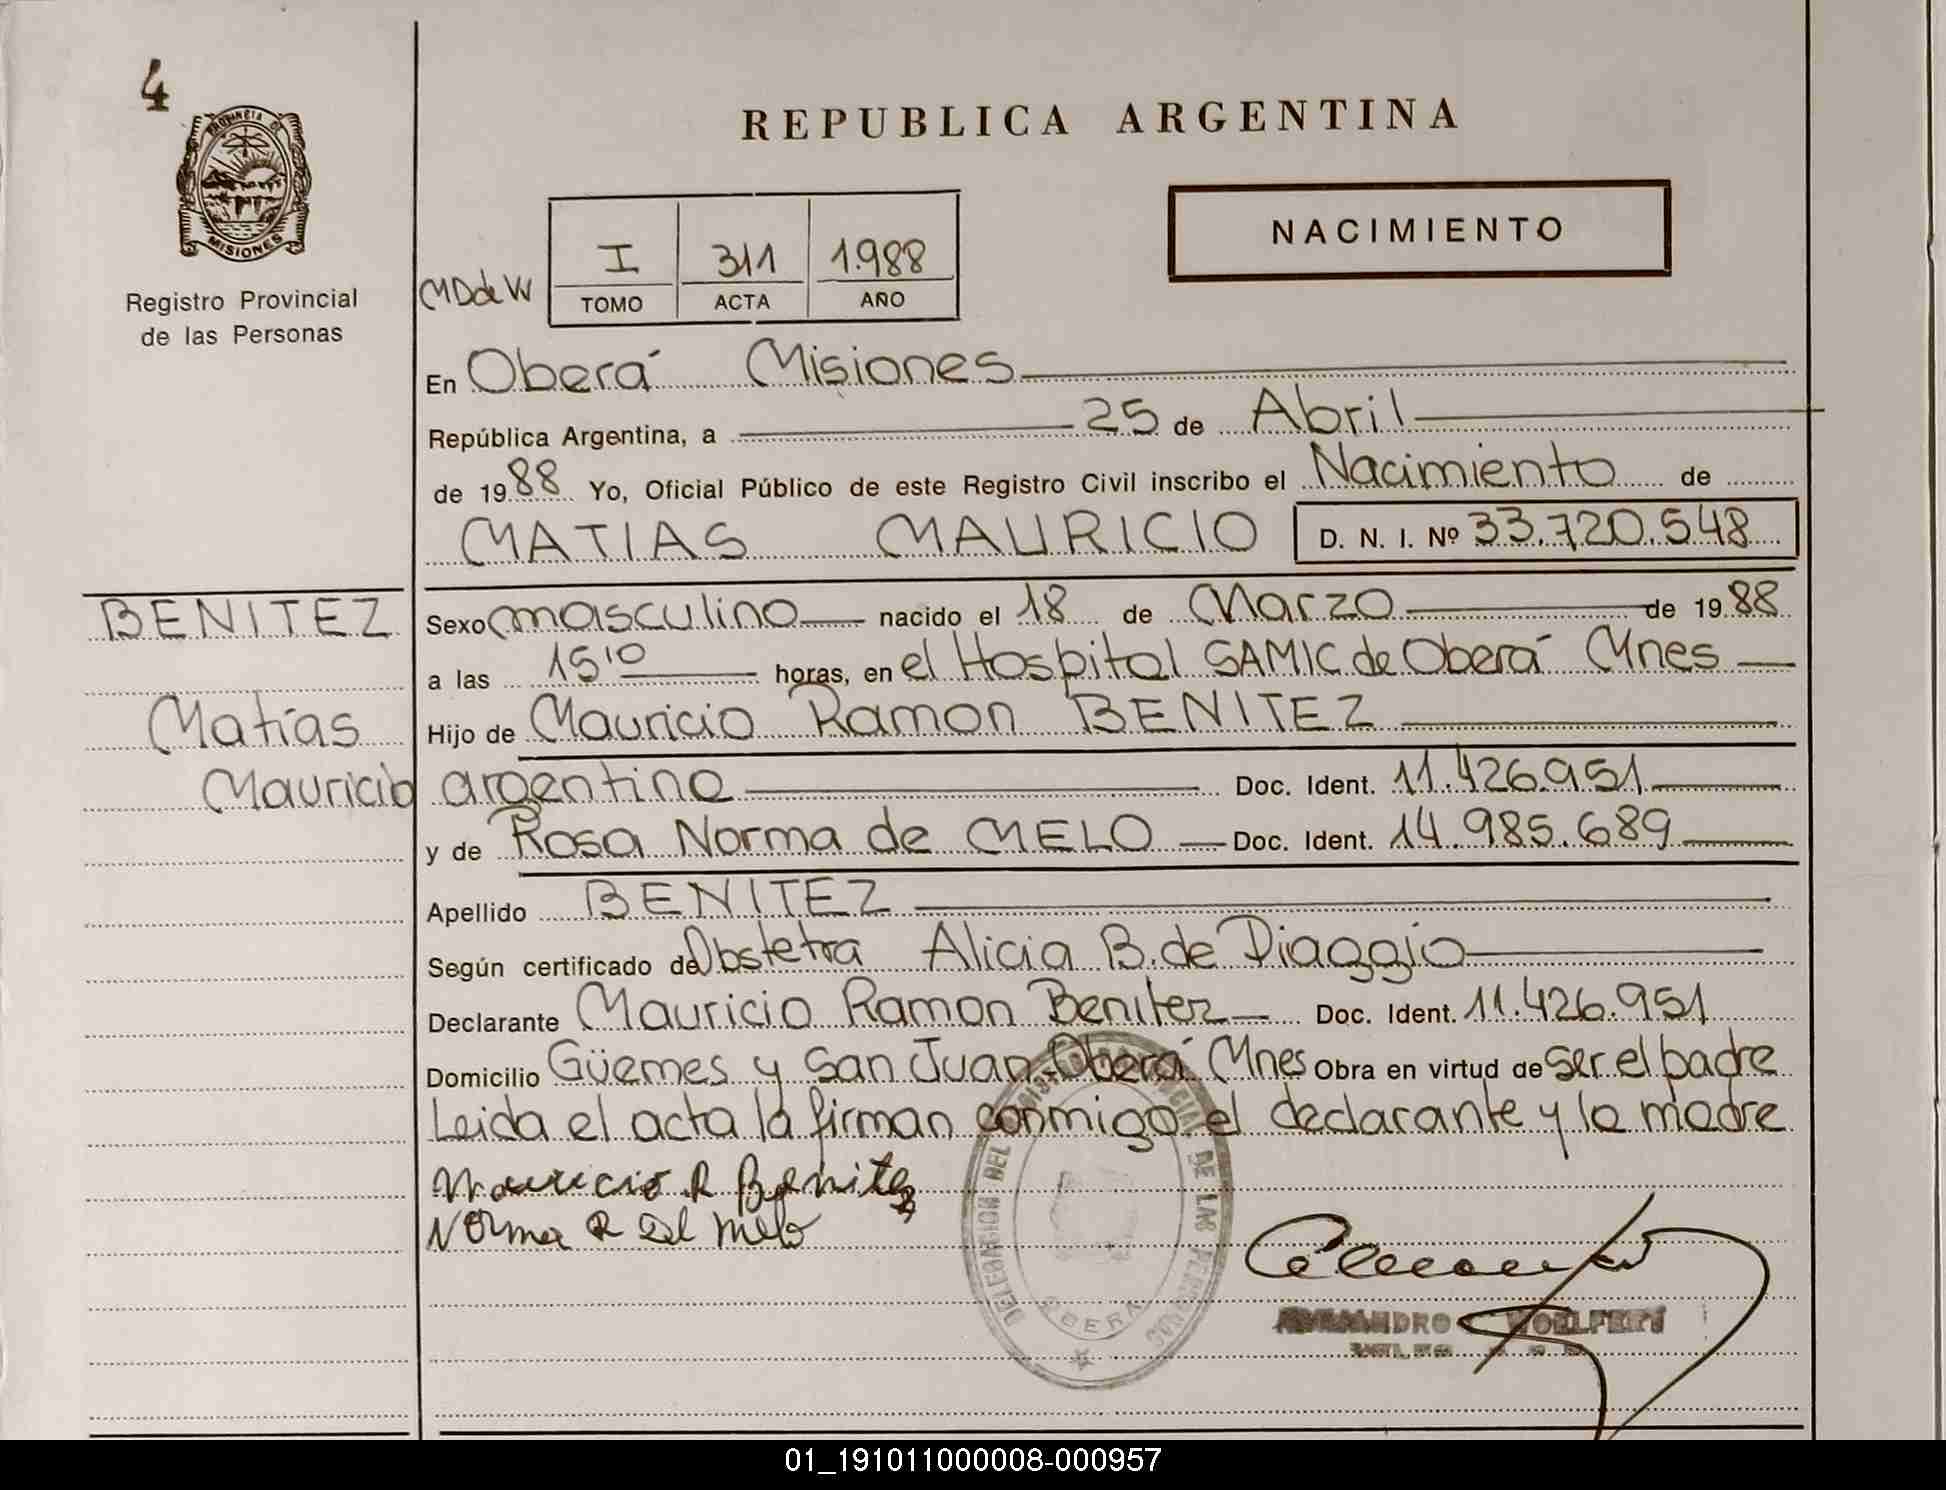 4
PROVINCIA DE
MISIONES
Registro Provincial
de las Personas
REPUBLICA ARGENTINA
NACIMIENTO
I 311 1.988
TOMO ACTA AÑO
MDdeW
En Oberá Misiones
República Argentina, a 25 de Abril
de 1988 Yo, Oficial Público de este Registro Civil inscribo el Nacimiento de
MATIAS MAURICIO D. N. I. Nº 33.720.548
BENITEZ
Matías
Mauricio
Sexo masculino nacido el 18 de Marzo de 1988
a las 15'10 horas, en el Hospital SAMIC de Oberá Mnes
Hijo de Mauricio Ramon BENITEZ
argentino Doc. Ident. 11.426.951
y de Rosa Norma de MELO Doc. Ident. 14.985.689
Apellido BENITEZ
Según certificado de Obstetra Alicia B. de Diaggio
Declarante Mauricio Ramon Benitez Doc. Ident. 11.426.951
Domicilio Güemes y San Juan-Oberá Mnes Obra en virtud de ser el padre
Leida el acta la firman conmigo el declarante y la madre
Mauricio R Benitez
Norma R del melo
DELEGACION DEL REGISTRO PROVINCIAL DE LAS PERSONAS
OBERA
01_191011000008-000957